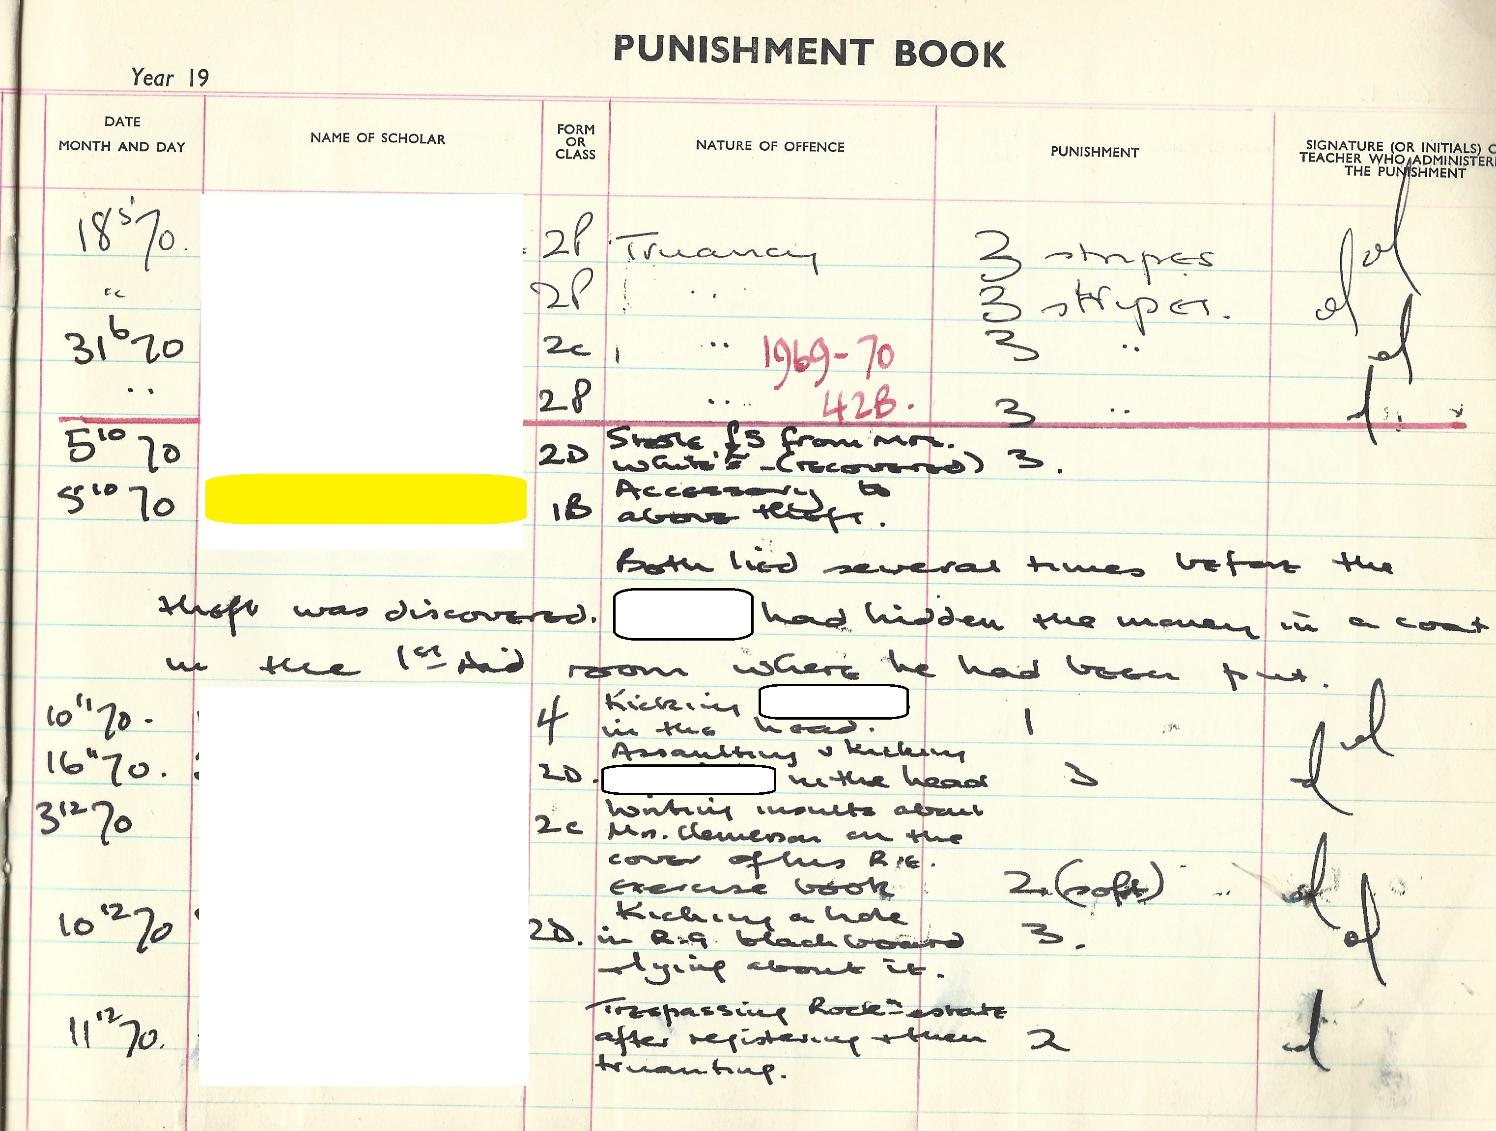 PUNISHMENT BOOK
Year 19
DATE
MONTH AND DAY
NAME OF SCHOLAR
FORM
OR
CLASS
NATURE OF OFFENCE
PUNISHMENT
SIGNATURE (OR INITIALS) O
TEACHER WHO ADMINISTER
THE PUNISHMENT
18 5 70. 2P Truancy 3 stripes
" 2P " 3 stripes.
31 6 70 2c " 3 "
1969-70
" 2P " 3 "
42B.
5 10 70 2D Stole £5 from Mrs.
White's - (recovered) 3.
5 10 70 1B Accessory to
above theft.
Both lied several times before the
theft was discovered. had hidden the money in a coat
in the 1st Aid room where he had been put.
10 11 70. 4 Kicking
in the head. 1
16 11 70. 2D. Assaulting & kicking
in the head 3
3 12 70 2c Writing insults about
Mrs. Clemerson on the
cover of his R.E.
exercise book 2 (soft)
10 12 70 2D. Kicking a hole
in R.9 blackboard 3.
& lying about it.
11 12 70. Trespassing Rock-estate
after registering & then 2
truanting.